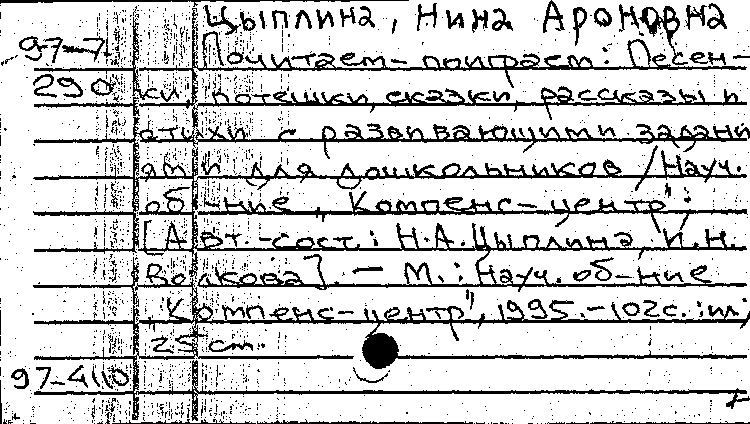 Цыплина, Нина Ароновна
97-7 Почитаем-поиграем: Песен-
290 ки, потешки, сказки, рассказы и
стихи с развивающими задани
ями для дошкольников / Науч.
об-ние „Компенс-центр";
[Авт.-сост.: Н.А.Цыплина, И.Н.
Волкова]. — М.: Науч. об-ние
„Компенс-центр", 1995.-102с.: ил;
25 cm.
97-4110